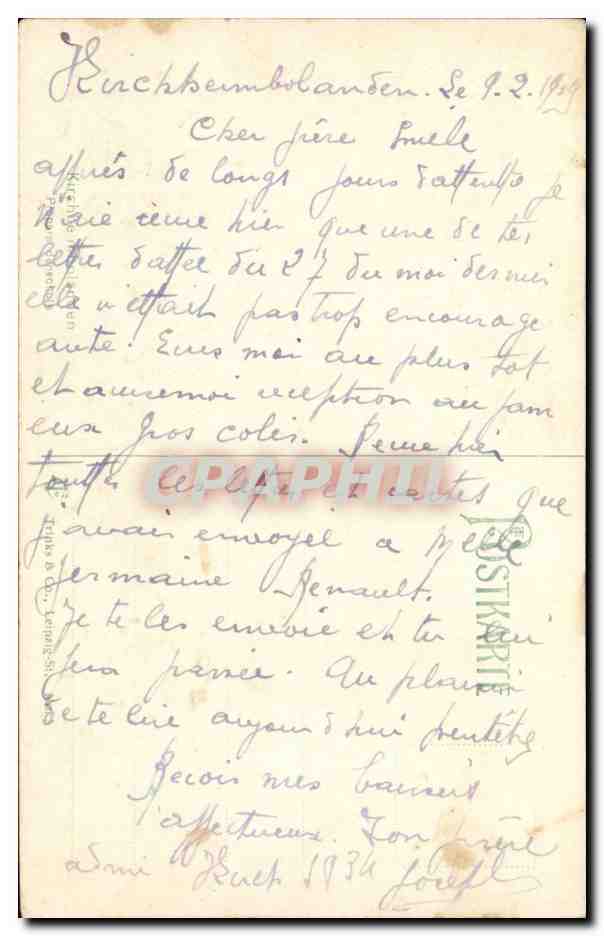 Kirchheimbolanden. Le 9.2.1919
Cher frère Emile
appués de longs jours d'attente je
n'aie reçue hier que une de tes
lettres dattée du 27 du moi dernier
ella n'ettait pas trop encourage
ante. Envs moi au plus tot
et accusemoi reception au fam
eux gros colis. Recue hier
toutter les lettres et cartes que
j'avais envoyel a Melle
Germaine Renault.
Je te les envoie et tu lui
fera passée. Au plaisir
de te lire aujourd'hui peutêtre
Recois mes baisers
affectueux. Ton frère
Joseph
POSTKARTE
CPAPHIL
Trinks & Co., Leipzig-St.